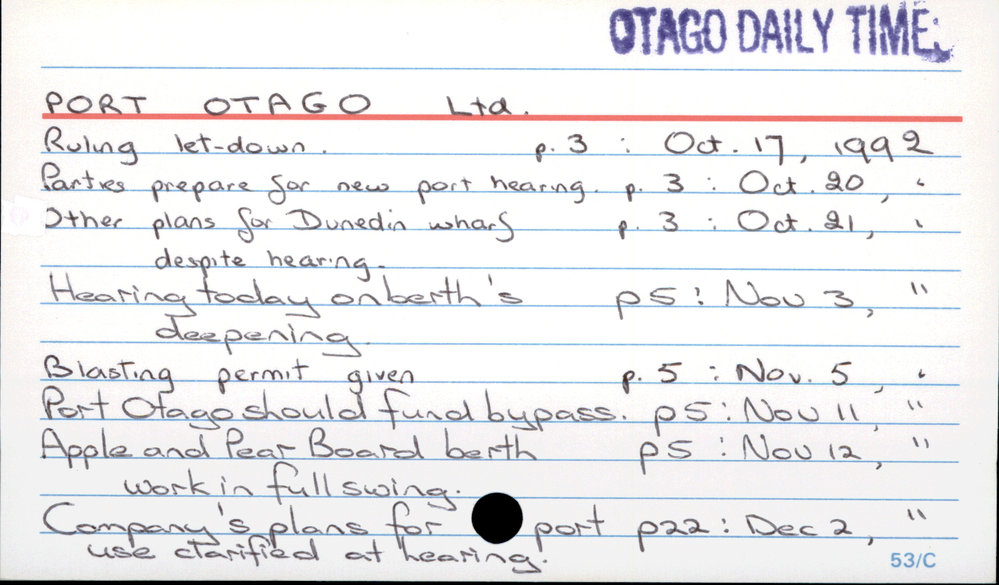 OTAGO DAILY TIMES
PORT OTAGO Ltd.
Ruling let-down. p. 3 : Oct. 17, 1992
Parties prepare for new port hearing. p. 3 : Oct. 20, "
Other plans for Dunedin wharf p. 3 : Oct. 21, "
despite hearing.
Hearing today on berth's p5 : Nov 3, "
deepening.
Blasting permit given p. 5 : Nov. 5, "
Port Otago should fund bypass. p5 : Nov 11, "
Apple and Pear Board berth p5 : Nov 12, "
work in full swing.
Company's plans for port p22 : Dec 2, "
use clarified at hearing.
53/C